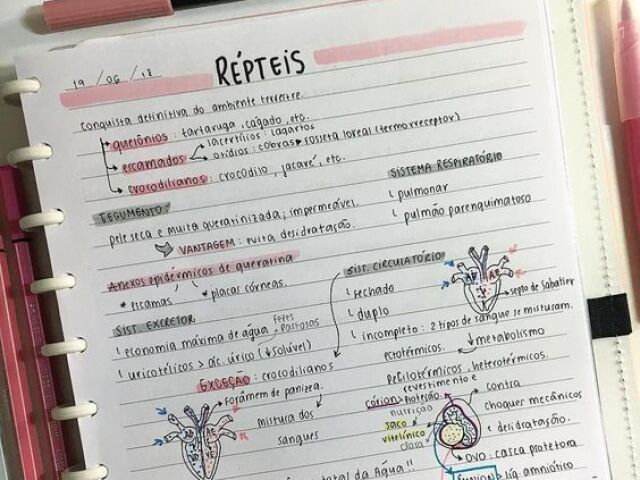 19 / 06 / 18
RÉPTEIS
Conquista definitiva do ambiente terrestre.
quelônios: tartaruga, cágado, etc.
escamados
lacertílios: lagartos
ofídios: cobras → fosseta loreal (termorreceptor)
crocodilianos: crocodilo, jacaré, etc.
TEGUMENTO:
pele seca e muita queratinizada; impermeável.
VANTAGEM: evita desidratação.
SISTEMA RESPIRATÓRIO
pulmonar
pulmão parenquimatoso
Anexos epidérmicos de queratina
* escamas
* placas córneas.
SIST. EXCRETOR
economia máxima de água
fezes
pastosas
uricotélicos > ác. úrico (↓ solúvel)
EXCEÇÃO: crocodilianos
forâmem de panizza.
mistura dos
sangues
SIST. CIRCULATÓRIO
fechado
duplo
incompleto: 2 tipos de sangue se misturam.
AD
AE
septo de Sabatier
ectotérmicos.
↓ metabolismo
pecilotérmicos, heterotérmicos.
AD
AE
córion → proteção
revestimento e
contra
choques mecânicos
e desidratação.
nutrição
saco
vitelínico
clara
OVO: casca protetora
ÂMNION → líq. amniótico
total da Água!!